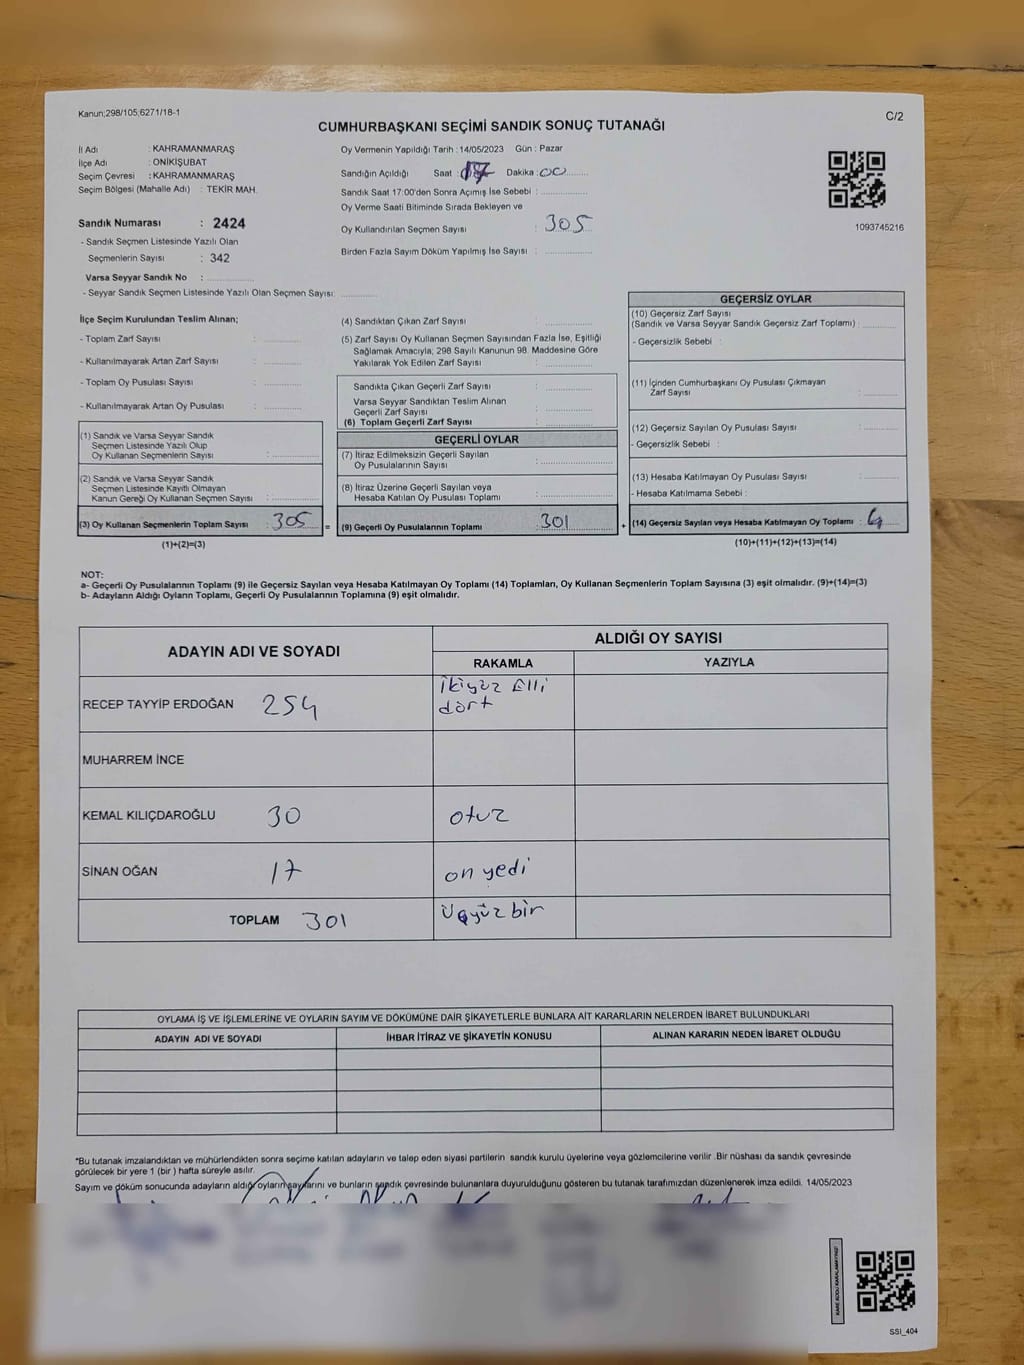 Kanun;298/105;6271/18-1
C/2
CUMHURBAŞKANI SEÇİMİ SANDIK SONUÇ TUTANAĞI
İl Adı : KAHRAMANMARAŞ
İlçe Adı : ONİKİŞUBAT
Seçim Çevresi : KAHRAMANMARAŞ
Seçim Bölgesi (Mahalle Adı) : TEKİR MAH.
Sandık Numarası : 2424
- Sandık Seçmen Listesinde Yazılı Olan
Seçmenlerin Sayısı : 342
Varsa Seyyar Sandık No :
- Seyyar Sandık Seçmen Listesinde Yazılı Olan Seçmen Sayısı:
Oy Vermenin Yapıldığı Tarih : 14/05/2023 Gün : Pazar
Sandığın Açıldığı Saat : Dakika : 00
Sandık Saat 17:00'den Sonra Açımış İse Sebebi :
Oy Verme Saati Bitiminde Sırada Bekleyen ve
Oy Kullandırılan Seçmen Sayısı : 305
Birden Fazla Sayım Döküm Yapılmış İse Sayısı :
1093745216
İlçe Seçim Kurulundan Teslim Alınan;
- Toplam Zarf Sayısı :
- Kullanılmayarak Artan Zarf Sayısı :
- Toplam Oy Pusulası Sayısı :
- Kullanılmayarak Artan Oy Pusulası :
(1) Sandık ve Varsa Seyyar Sandık
Seçmen Listesinde Yazılı Olup
Oy Kullanan Seçmenlerin Sayısı :
(2) Sandık ve Varsa Seyyar Sandık
Seçmen Listesinde Kayıtlı Olmayan
Kanun Gereği Oy Kullanan Seçmen Sayısı :
(3) Oy Kullanan Seçmenlerin Toplam Sayısı : 305 =
(1)+(2)=(3)
(4) Sandıktan Çıkan Zarf Sayısı :
(5) Zarf Sayısı Oy Kullanan Seçmen Sayısından Fazla İse, Eşitliği
Sağlamak Amacıyla; 298 Sayılı Kanunun 98. Maddesine Göre
Yakılarak Yok Edilen Zarf Sayısı :
Sandıkta Çıkan Geçerli Zarf Sayısı :
Varsa Seyyar Sandıktan Teslim Alınan
Geçerli Zarf Sayısı :
(6) Toplam Geçerli Zarf Sayısı :
GEÇERLİ OYLAR
(7) İtiraz Edilmeksizin Geçerli Sayılan
Oy Pusulalarının Sayısı :
(8) İtiraz Üzerine Geçerli Sayılan veya
Hesaba Katılan Oy Pusulası Toplamı :
(9) Geçerli Oy Pusulalarının Toplamı : 301 +
GEÇERSİZ OYLAR
(10) Geçersiz Zarf Sayısı
(Sandık ve Varsa Seyyar Sandık Geçersiz Zarf Toplamı) :
- Geçersizlik Sebebi :
(11) İçinden Cumhurbaşkanı Oy Pusulası Çıkmayan
Zarf Sayısı :
(12) Geçersiz Sayılan Oy Pusulası Sayısı :
- Geçersizlik Sebebi :
(13) Hesaba Katılmayan Oy Pusulası Sayısı :
- Hesaba Katılmama Sebebi :
(14) Geçersiz Sayılan veya Hesaba Katılmayan Oy Toplamı : 4
(10)+(11)+(12)+(13)=(14)
NOT:
a- Geçerli Oy Pusulalarının Toplamı (9) ile Geçersiz Sayılan veya Hesaba Katılmayan Oy Toplamı (14) Toplamları, Oy Kullanan Seçmenlerin Toplam Sayısına (3) eşit olmalıdır. (9)+(14)=(3)
b- Adayların Aldığı Oyların Toplamı, Geçerli Oy Pusulalarının Toplamına (9) eşit olmalıdır.
ADAYIN ADI VE SOYADI
ALDIĞI OY SAYISI
RAKAMLA YAZIYLA
RECEP TAYYİP ERDOĞAN 254 ikiyüz Elli
dört
MUHARREM İNCE
KEMAL KILIÇDAROĞLU 30 otuz
SİNAN OĞAN 17 on yedi
TOPLAM 301 üçyüz bir
OYLAMA İŞ VE İŞLEMLERİNE VE OYLARIN SAYIM VE DÖKÜMÜNE DAİR ŞİKAYETLERLE BUNLARA AİT KARARLARIN NELERDEN İBARET BULUNDUKLARI
ADAYIN ADI VE SOYADI İHBAR İTİRAZ VE ŞİKAYETİN KONUSU ALINAN KARARIN NEDEN İBARET OLDUĞU
*Bu tutanak imzalandıktan ve mühürlendikten sonra seçime katılan adayların ve talep eden siyasi partilerin sandık kurulu üyelerine veya gözlemcilerine verilir .Bir nüshası da sandık çevresinde
görülecek bir yere 1 (bir ) hafta süreyle asılır.
Sayım ve döküm sonucunda adayların aldığı oyların sayılarını ve bunların sandık çevresinde bulunanlara duyurulduğunu gösteren bu tutanak tarafımızdan düzenlenerek imza edildi. 14/05/2023
KARE KODU KARALAMAYINIZ!
SSI_404